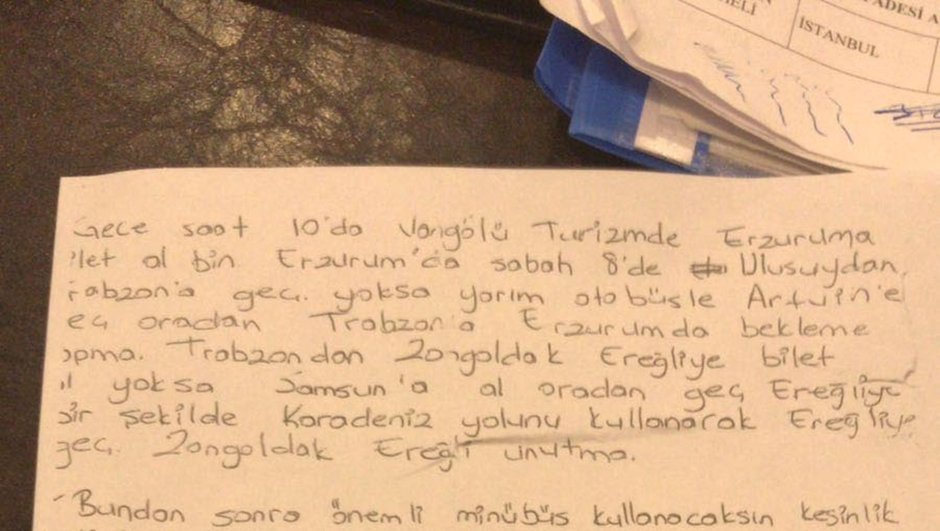 ADESİ A
ELİ
İSTANBUL
Gece saat 10'da Vangölü Turizmde Erzuruma
ilet al bin. Erzurum'da sabah 8'de Ulusuydan
rabzon'a geç. yoksa yarım otobüsle Artvin'e
eç oradan Trabzon'a Erzurumda bekleme
apma. Trabzondan Zongoldak Ereğliye bilet
al yoksa Samsun'a al oradan geç Ereğliye
bir şekilde Karadeniz yolunu kullanarak Ereğliye
geç. Zongoldak Ereğli unutma.
Bundan sonra önemli minübüs kullanacaksın kesinlik